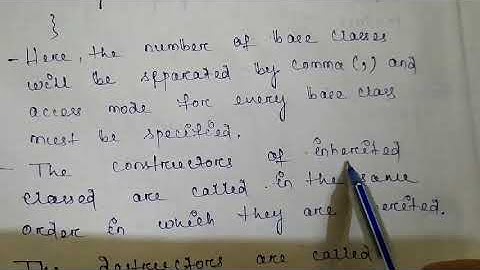 }
- Here, the number of base classes
will be separated by comma (,) and
access mode for every base class
must be specified.
- The constructors of inherited
classed are called in the same
order in which they are herited.
The destructors are called